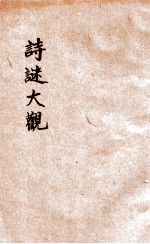 詩謎大觀